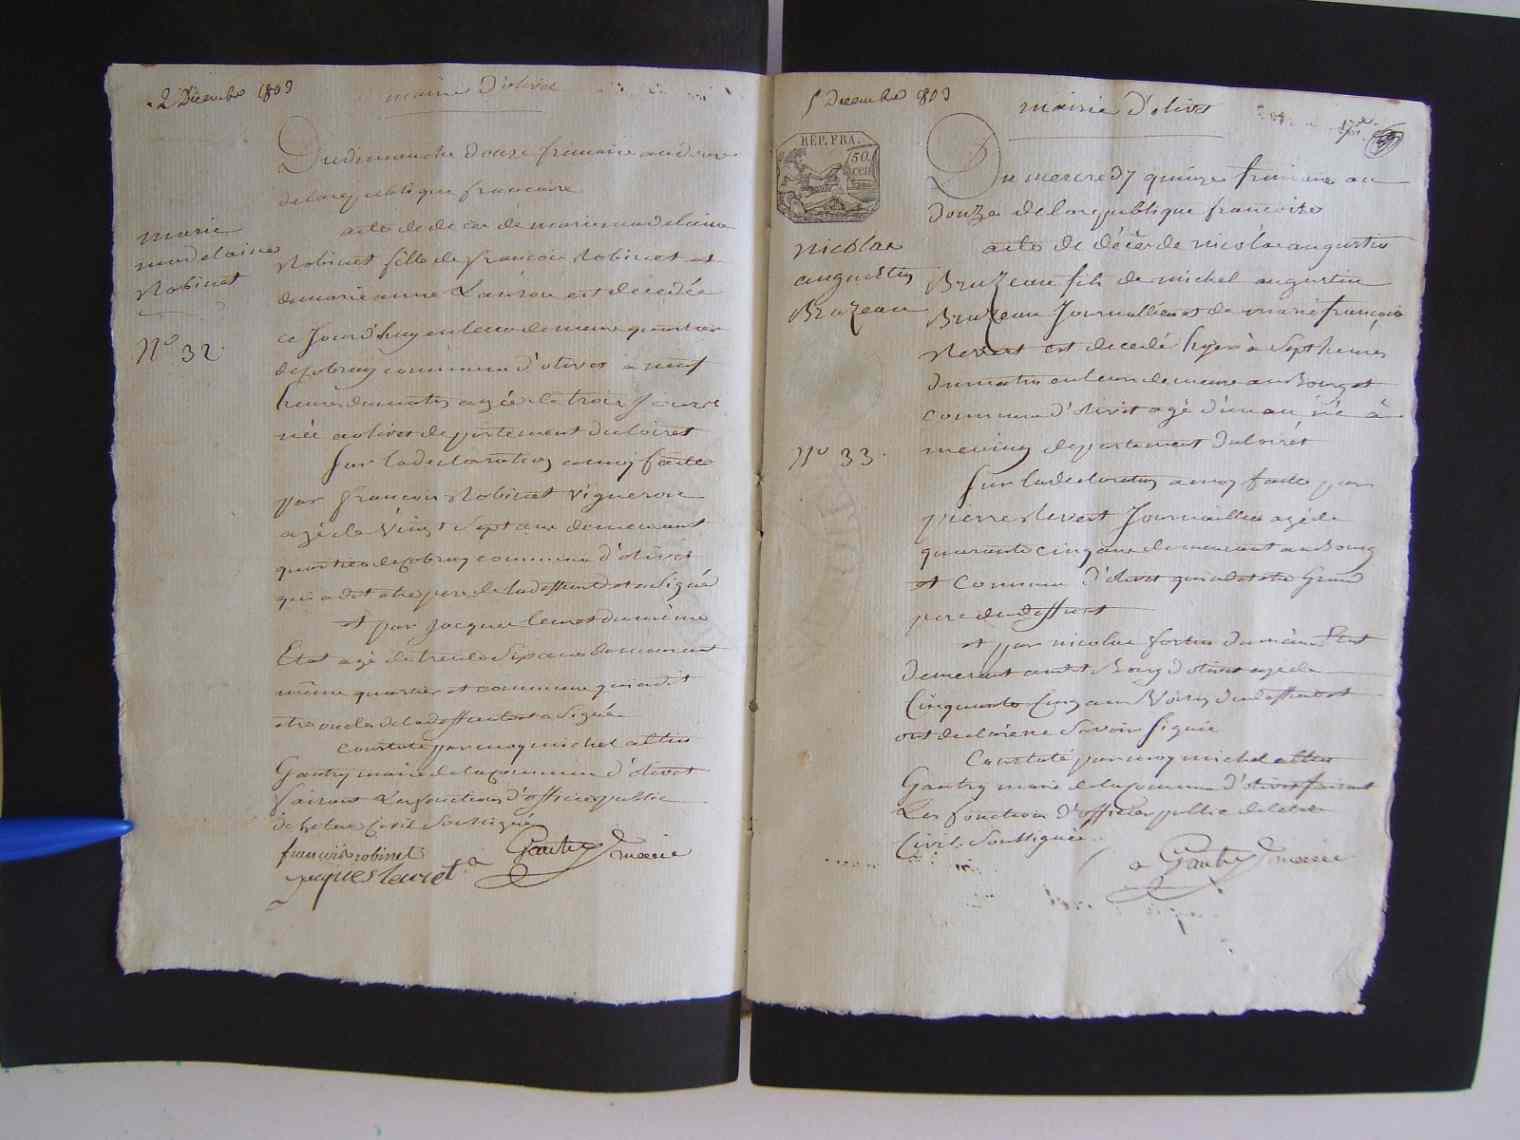 2 Decembre 1803
mairie D'olivet
Du dimanche douze frimaire an douze
de la republique francaise
acte de décès de marie madelaine
Robinet fille de francois Robinet et
de marie anne est decedée
ce Jourd'huy en leur demeure quartier
de commune d'olivet a neuf
heures du matin agée de trois Jours
née a olivet departement du loiret
Sur la declaration a moy faite
par francois Robinet Vigneron
agé de Vingt Sept ans demeurant
quartier de commune d'olivet
qui a dit etre pere de la deffunte et a Signé
et par Jacques leuret du même
Etat agé de trente Six ans demeurant
même quartier et commune qui a dit
etre oncle de la deffunte et a Signé
Constaté par moy michel
Gautry maire de la commune d'olivet
faisant Les fonctions d'officier public
de letat Civil Soussigné
francois robinet
jacques leuret
Gautry maire
marie
madelaine
Robinet
N° 32
5 Decembre 1803
mairie d'olivet
REP. FRA.
50
CEN
Du mercredy quinze frimaire an
douze de la republique francoise
acte de décès de nicolas augustin
BruZeau fils de michel augustin
BruZeau Journallier et de marie françoise
Nevert est decedé hyer à Sept heures
du matin en leur demeure au Bourg et
commune d'olivet agé d'un an né à
departement du loiret
Sur la declaration a moy faite par
pierre Nevert Journallier agé de
quarante cinq ans demeurant au Bourg
et Commune d'olivet qui a dit etre Grand
pere du deffunt
et par nicolas fortin du même Etat
demeurant audit Bourg d'olivet agé de
Cinquante Cinq ans Voisin du deffunt et
ont declaré ne Savoir Signer
Constaté par moy michel
Gautry maire de la commune d'olivet faisant
Les fonctions d'officier public de letat
Civil Soussigné
Gautry maire
nicolas
augustin
BruZeau
N° 33.